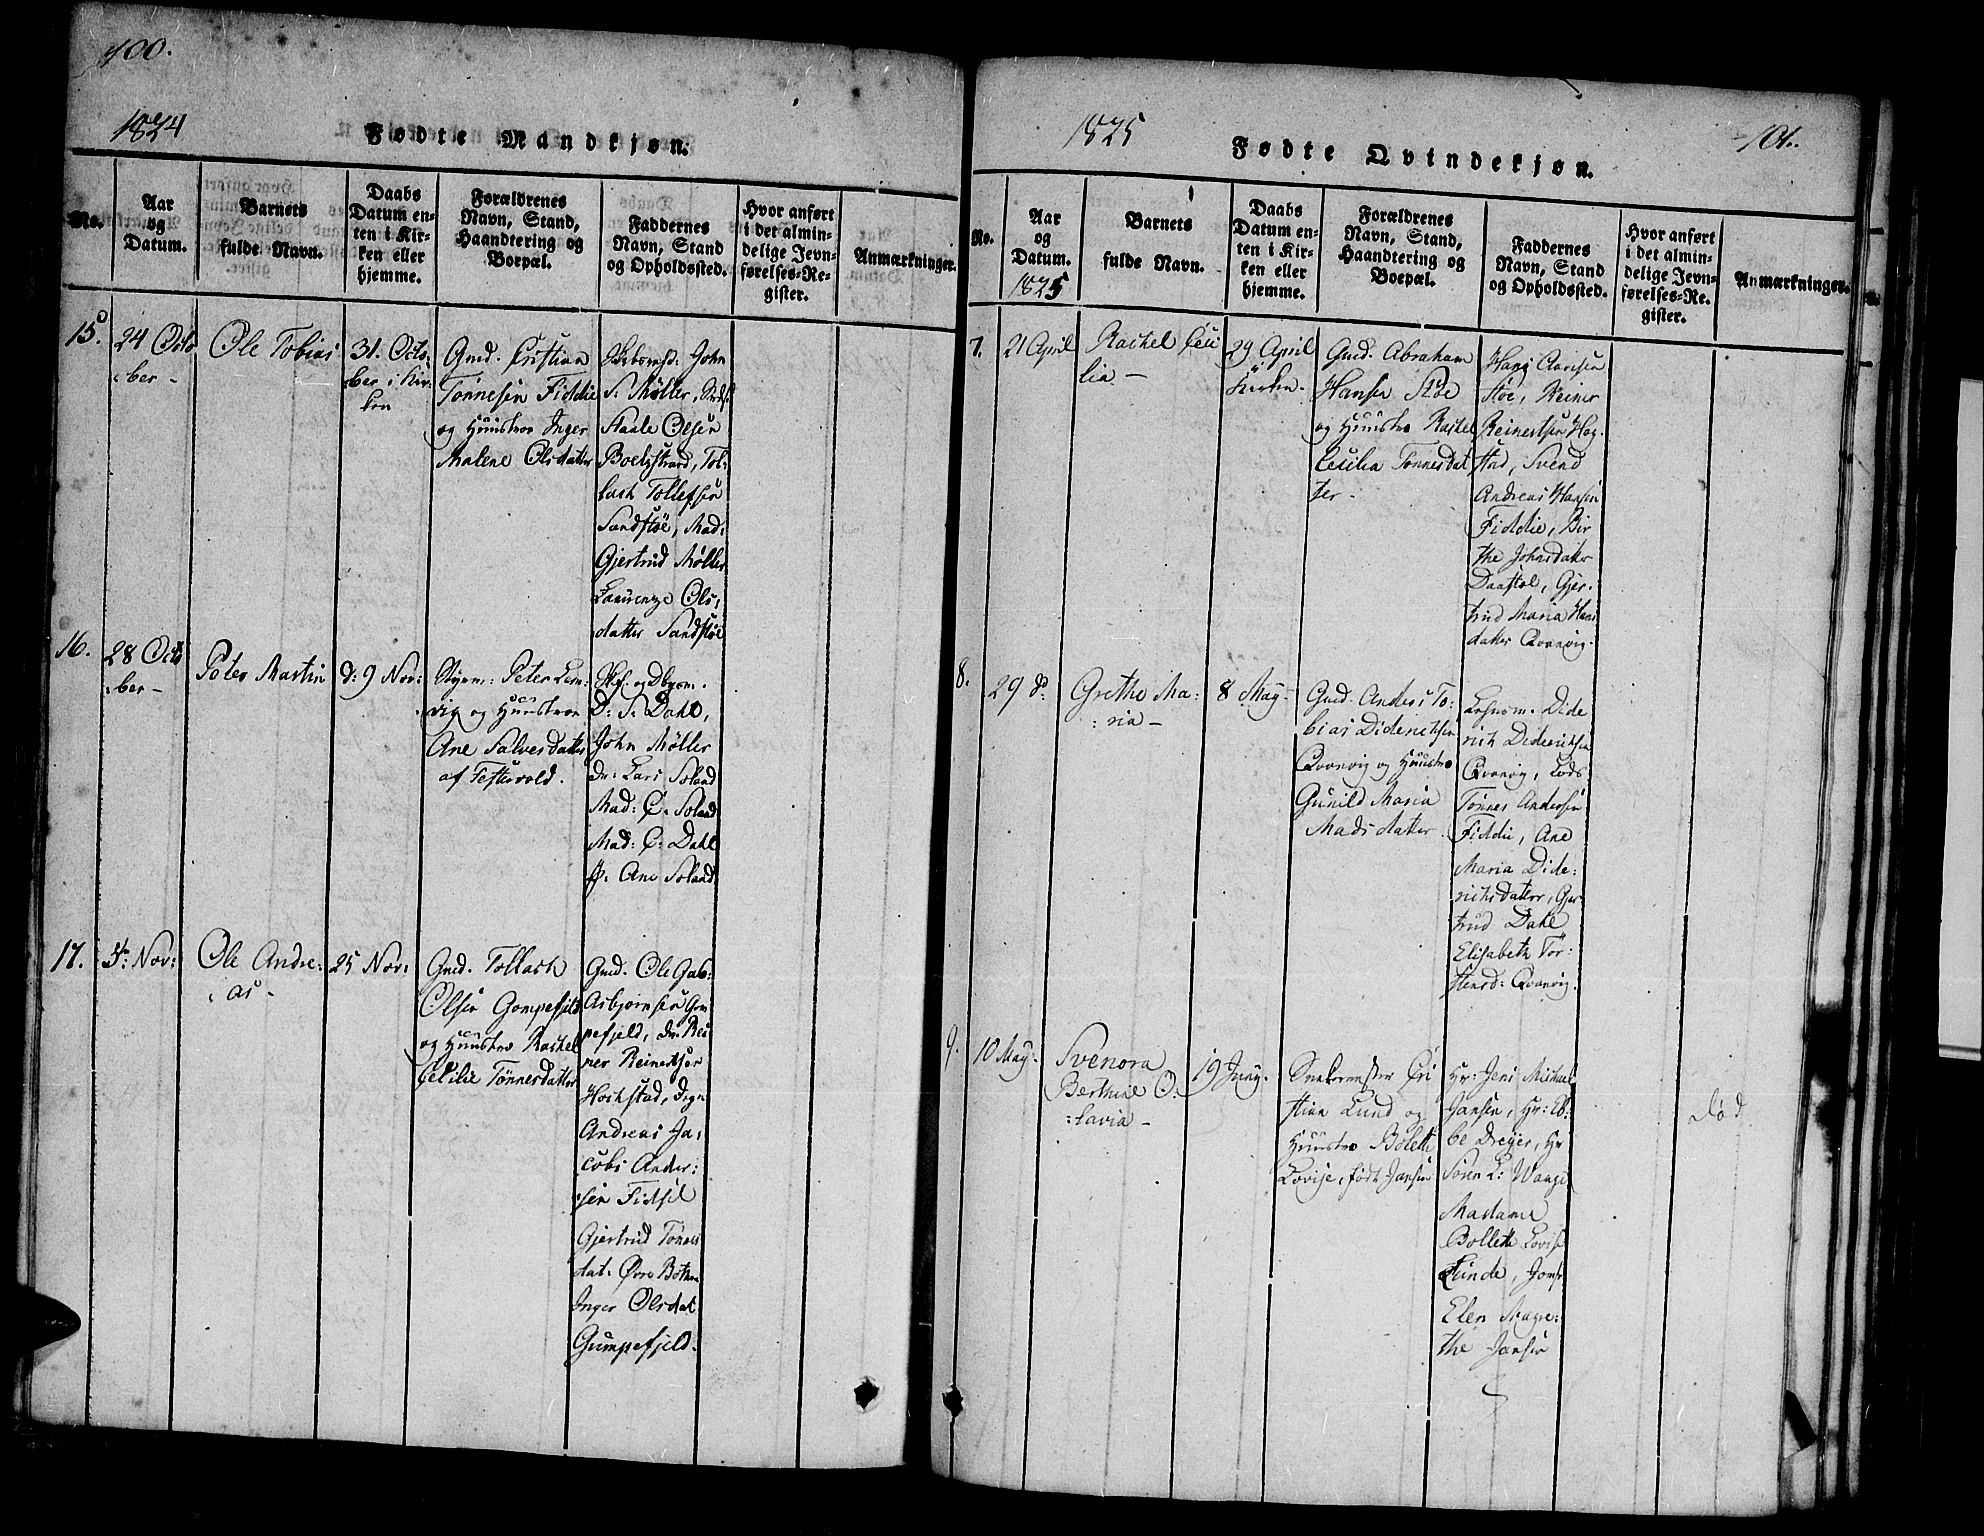 100.
1824
Fødte Mandkjøn.
No.
Aar
og
Datum.
Barnets
fulde Navn.
Daabs
Datum en-
ten i Kir-
ken eller
hjemme.
Forældrenes
Navn, Stand,
Haandtering og
Boepæl.
Faddernes
Navn, Stand
og Opholdssted.
Hvor anført
i det almin-
delige Jevn-
førelses-Re-
gister.
Anmærkninger.
15.
24 Octo
ber -
Ole Tobias
31. Octo
ber i Kir-
ken
Gmd. Cristian
Tønnesen Fiddie
og Huustroe Inger
Malene Olsdatter
John
S. Møller,
Staale Olsen
Boelgstrand, Tol-
lach Tollefsen
Sandstøe, Mad:
Gjertrud Møller
Laurenze Ols-
datter Sandstøe
16.
28 Octo
ber -
Peter Martin
d: 9 Nov:
Styrm: Peter Lem-
vig og Huustroe
Ane Salvesdatter
af Festervold.
D: S. Dahl,
John Møller
dr: Lars Soland
Mad: C. Soland
Mad: C: Dahl
Jf: Ane Soland
17.
5te Nov:
Ole Andre:
as -
25 Nov:
Gmd. Tollach
Olsen Gompefjeld
og Huustro Rachel
Cecilie Tønnesdatter
Gmd. Ole Gab:
Asbjørnsen Gom
pefjeld, dr. Rei
ner Reinertsen
Hochstad, dgn
Andreas Ja:
cobs Ander:
sen Fidsel
Gjertrud Tønes
dat: Øvre Bothne
Inger Olsdat
Gumpefjeld.
1825
Fødte Qvindekjøn.
101.
No.
Aar
og
Datum.
1825
Barnets
fulde Navn.
Daabs
Datum en-
ten i Kir-
ken eller
hjemme.
Forældrenes
Navn, Stand,
Haandtering og
Boepæl.
Faddernes
Navn, Stand
og Opholdssted.
Hvor anført
i det almin-
delige Jevn-
førelses-Re-
gister.
Anmærkninger.
7.
21 April
Rachel Ceci
lia -
29 April
Kirken.
Gmd. Abraham
Hansen Støe
og Huustro Rachel
Cecilia Tønnesdat
ter -
Hans Aansen
Støe, Reiner
Reinertsen Hog-
stad, Svend
Andreas Hansen
Fiddie, Bir
the Johnsdatter
Daastøl, Gjer-
trud Maria Hans
datter Qvanvig.
8.
29 d:
Grethe Ma:
ria -
8 May
Gmd. Anders To-
bias Diderichsen
Qvanvig og Huustro
Gunild Maria
Madsdatter.
Dide
rich Diderichsen
Qvanvig, Lods
Tønnes Andersen
Fiddie, Ane
Maria Dide:
richsdatter, Gjer
trud Dahl
Elisabeth Tor-
stensd: Qvanvig.
9.
10 May.
Svenora
Berthine O:
lavia -
19 Juny.
Snekermster Cri
stian Lund og
Huustro Bolette
Lovise, født Jansen
Hr: Jens Michael
Jansen, Hr: Eb:
be Dreyer, Hr
Søren L: Waage
Madame
Bollette Lovise
Lunde, Jomfr
Elen Magre:
the Jansen
død